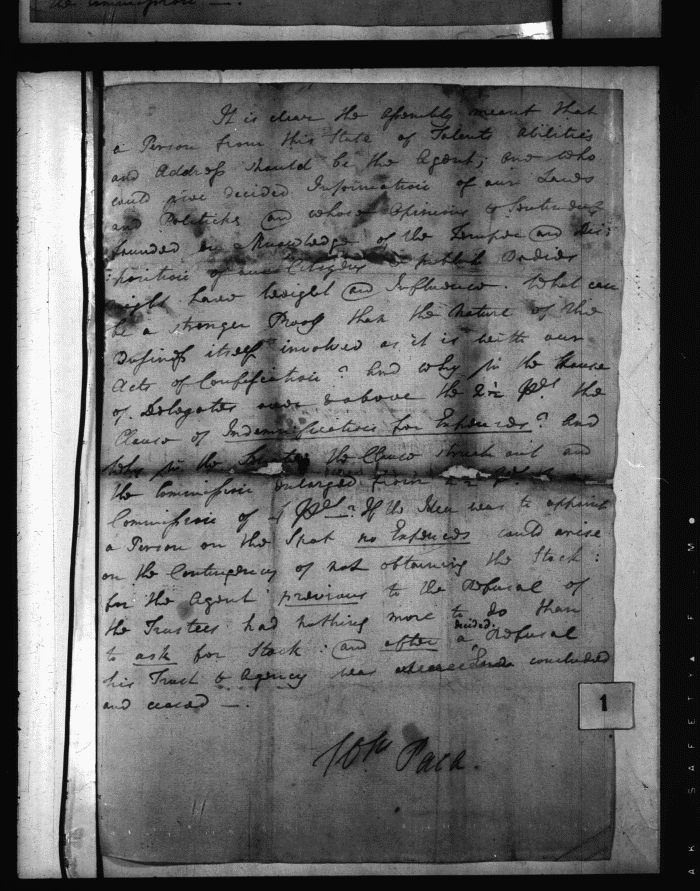 the Commission —.
It is clear the Assembly meant that
a Person from this State of Talents Abilities
and Address should be the Agent; one who
could give decided Information of our Laws
and Politicks and whose Opinions &
founded on Knowledge of the Temper and Dis:
:position of our Citizens & publick Bodies
might have weight and Influence. What can
be a stronger Proof than the Nature of the
Business itself involved as it is with our
Acts of Confiscation? And why in the House
of Delegates over & above the 2½ PCt the
Clause of Indemnification for Expences? And
why in the Senate the Clause struck out and
the Commission enlarged from 2½ PCt to a
Commission of 4 PCt? If the Idea was to appoint
a Person on the Spot no Expences could arise
on the Contingency of not obtaining the Stock:
for the Agent previous to the Refusal of
the Trustees had nothing more to do than
to ask for Stock: and after a decided Refusal
his Trust & Agency was concluded
and ceased —.
Wm Paca.
1
AK SAFETY FILM